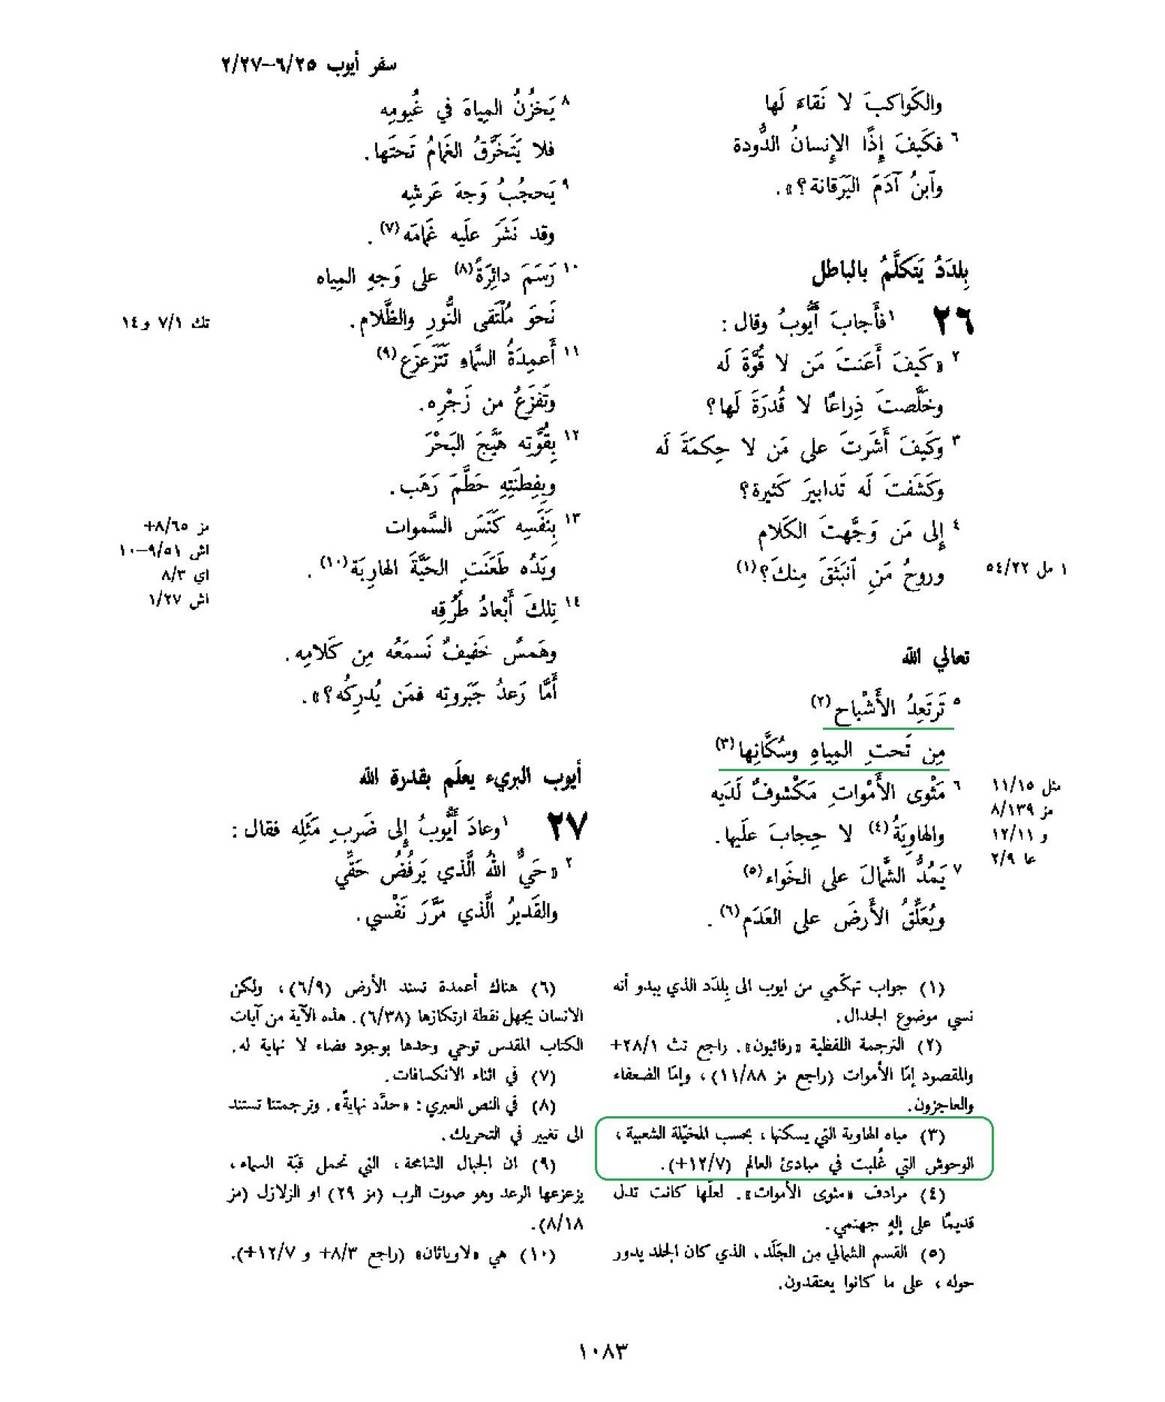 سفر أيوب ٢٥/٦–٢٧/٢
والكَواكبَ لا نَقاءَ لَها
٦ فكَيفَ إِذًا الإِنسانُ الدُّودة
وٱبنُ آدَمَ اليَرَقانة؟».
بِلدَدُ يَتَكلَّمُ بالباطل
٢٦ ١ فأَجابَ أَيُّوبُ وقال :
٢ «كَيفَ أَعَنتَ مَن لا قُوَّةَ لَه
وخَلَّصتَ ذِراعًا لا قُدرَةَ لَها؟
٣ وَكَيفَ أَشَرتَ على مَن لا حِكمَةَ لَه
وَكَشَفتَ لَه تَدابيرَ كَثيرة؟
٤ إِلى مَن وَجَّهتَ الكَلام
وروحُ مَنِ ٱنبَثَقَ مِنكَ؟(١)
١ مل ٢٢/٥٤
تعالي الله
٥ تَرتَعِدُ الأَشْباح(٢)
مِن تَحتِ المِياهِ وسُكَّانِها(٣)
٦ مَثْوى الأَمْواتِ مَكْشوفٌ لَدَيه
والهاوِيَةُ(٤) لا حِجابَ علَيها.
٧ يَمُدُّ الشَّمالَ على الخَواء(٥)
ويُعَلِّقُ الأَرضَ على العَدَم(٦).
مثل ١٥/١١
مز ١٣٩/٨
و ١١/١٢
عا ٩/٢
٨ يَخزُنُ المِياهَ في غُيومِه
فلا يَتَخَرَّقُ الغَمامُ تَحتَها.
٩ يَحجُبُ وَجهَ عَرشِه
وقد نَشَرَ علَيه غَمامَه(٧).
١٠ رَسَمَ دائِرَةً(٨) على وَجهِ المِياه
نَحوَ مُلْتَقى النُّورِ والظَّلام.
تك ١/٧ و١٤
١١ أَعمِدَةُ السَّماءِ تَتَزَعزَع(٩)
وتَفزَعُ من زَجْرِه.
١٢ بِقُوَّتِه هَيَّجَ البَحْرَ
وبِفِطنَتِهِ حَطَّمَ رَهَب.
١٣ بِنَفَسِه كَنَسَ السَّموات
ويَدُه طَعَنَتِ الحَيَّةَ الهارِبَة(١٠).
مز ٦٥/٨+
اش ٥١/٩–١٠
اي ٣/٨
اش ٢٧/١
١٤ تِلكَ أَبْعادُ طُرُقِه
وهَمسٌ خَفيفٌ نَسمَعُه مِن كَلامِه.
أَمَّا رَعدُ جَبَروتِه فمَن يُدرِكُه؟».
أيوب البريء يعلَم بقدرة الله
٢٧ ١ وعادَ أَيُّوبُ إِلى ضَربِ مَثَلِه فقال :
٢ «حَيٌّ اللهُ الَّذي يَرفُضُ حَقِّي
والقَديرُ الَّذي مَرَّرَ نَفْسي.
(١) جواب تهكّمي من ايوب الى بِلدَد الذي يبدو أنه
نسي موضوع الجدال.
(٢) الترجمة اللفظية «رفائيون». راجع تث ١/٢٨+
والمقصود إمّا الأموات (راجع مز ٨٨/١١)، وإمّا الضعفاء
والعاجزون.
(٣) مياه الهاوية التي يسكنها، بحسب المخيّلة الشعبية،
الوحوش التي غُلبت في مبادئ العالم (٧/١٢+).
(٤) مرادف «مثوى الأموات». لعلّها كانت تدل
قديمًا على إلهٍ جهنمي.
(٥) القسم الشمالي من الجَلَد، الذي كان الجلد يدور
حوله، على ما كانوا يعتقدون.
(٦) هناك أعمدة تسند الأرض (٩/٦)، ولكن
الانسان يجهل نقطة ارتكازها (٣٨/٦). هذه الآية من آيات
الكتاب المقدس توحي وحدها بوجود فضاء لا نهاية له.
(٧) في اثناء الانكسافات.
(٨) في النص العبري: «حدَّد نهايةً». وترجمتنا تستند
الى تغيير في التحريك.
(٩) ان الجبال الشامخة، التي تحمل قبّة السماء،
يزعزعها الرعد وهو صوت الرب (مز ٢٩) او الزلازل (مز
١٨/٨).
(١٠) هي «لاوياثان» (راجع ٣/٨+ و ٧/١٢+).
١٠٨٣